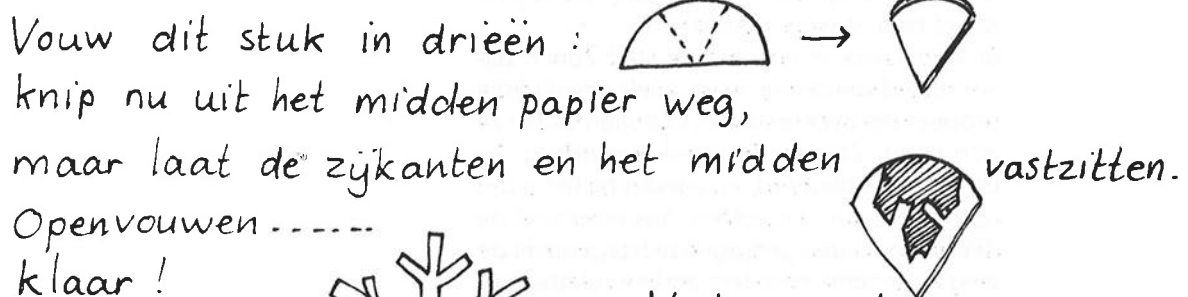 Vouw dit stuk in drieën :
knip nu uit het midden papier weg,
maar laat de zijkanten en het midden vastzitten.
Openvouwen ------
klaar !